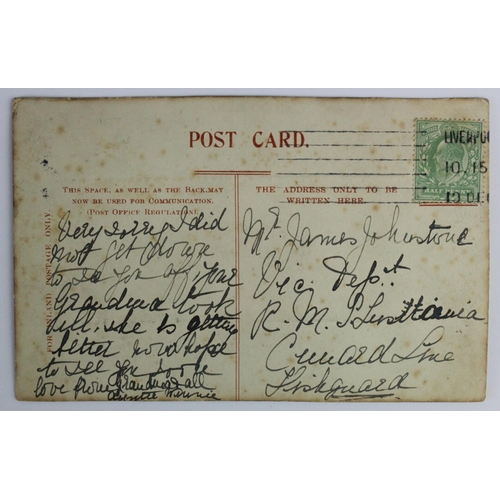 POST CARD.
THIS SPACE, AS WELL AS THE BACK, MAY
NOW BE USED FOR COMMUNICATION.
(POST OFFICE REGULATION)
FOR INLAND POSTAGE ONLY.
THE ADDRESS ONLY TO BE
WRITTEN HERE
HALF PENNY
LIVERPOO
10.15
19 DEC
Very sorry I did
not get down
to see you off your
Grandma took
ill, she is getting
better now hope
to see you soon
love from Grandma & all
Auntie
Mr. James Johnstone
Vic. Dept
R. M. S Lusitania
Cunard Line
Fishguard